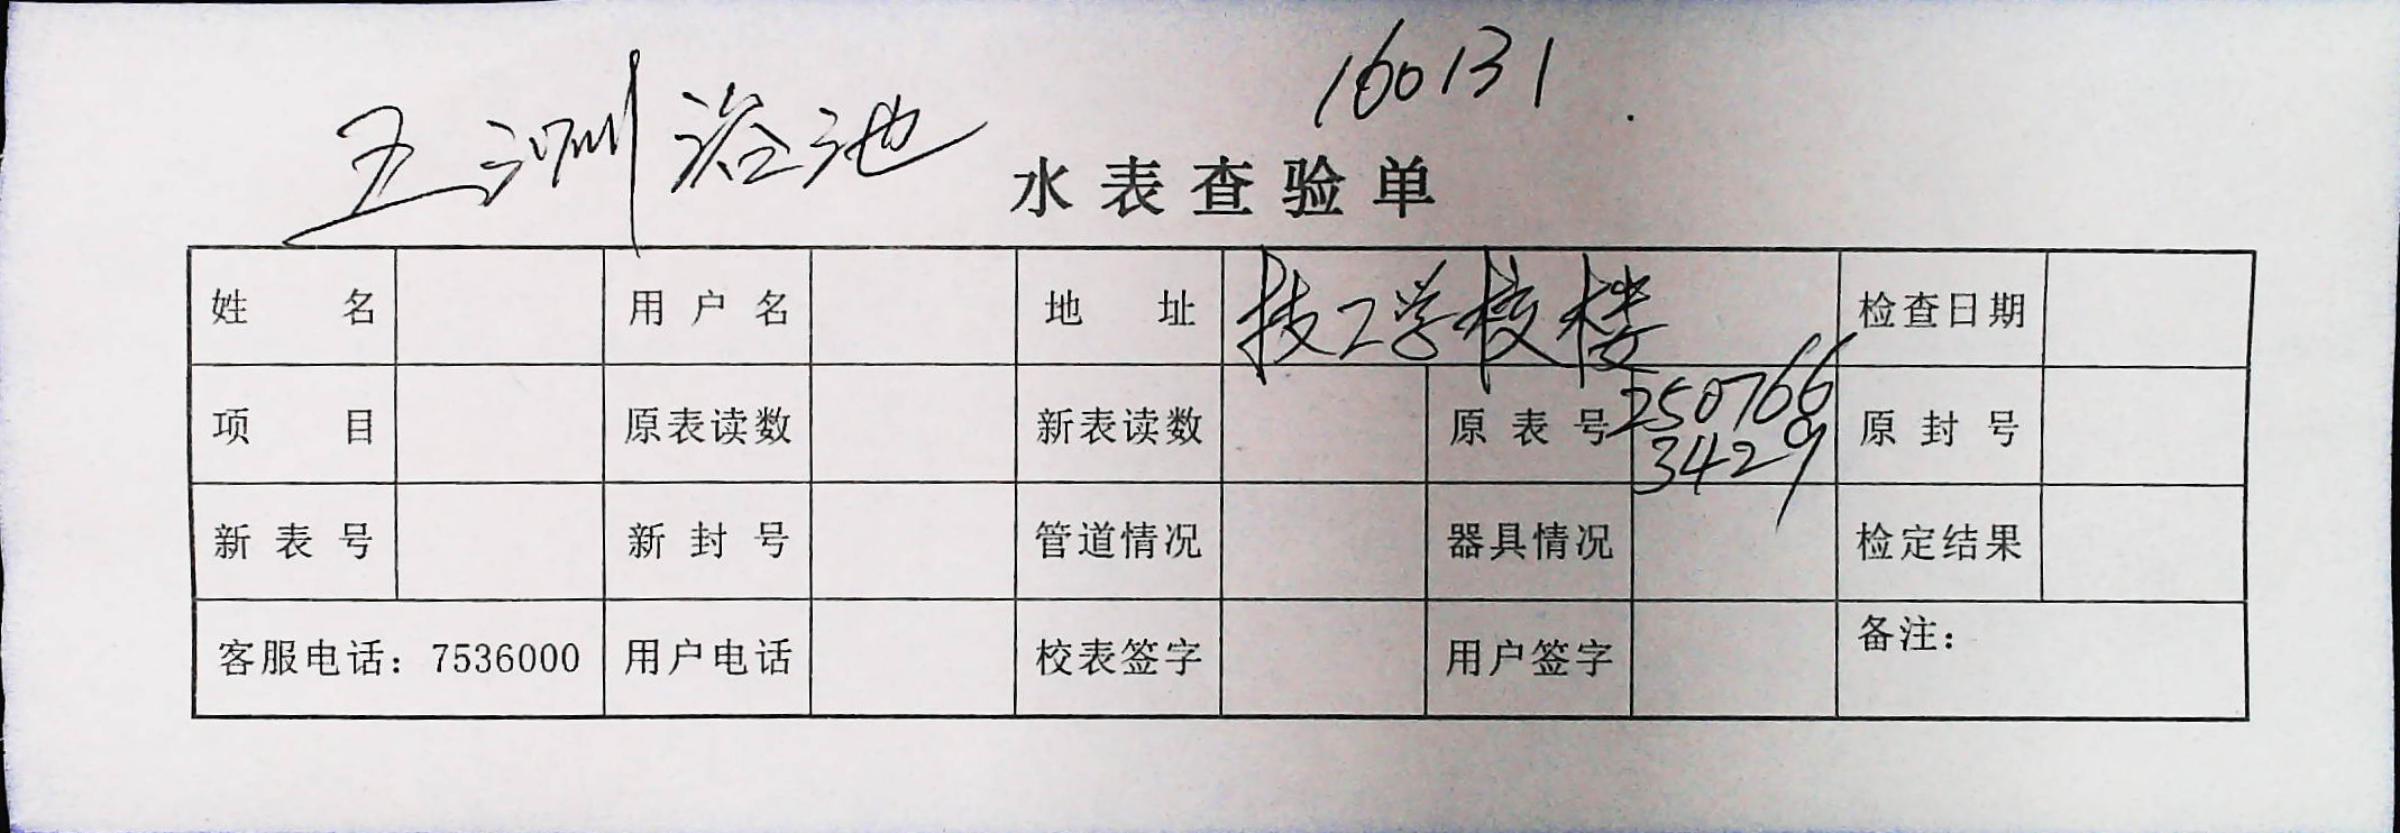 160131
五洲浴池
水表查验单
姓名 用户名 地址 技工学校楼 检查日期
项目 原表读数 新表读数 原表号 25076634299 原封号
新表号 新封号 管道情况 器具情况 检定结果
客服电话：7536000 用户电话 校表签字 用户签字 备注：